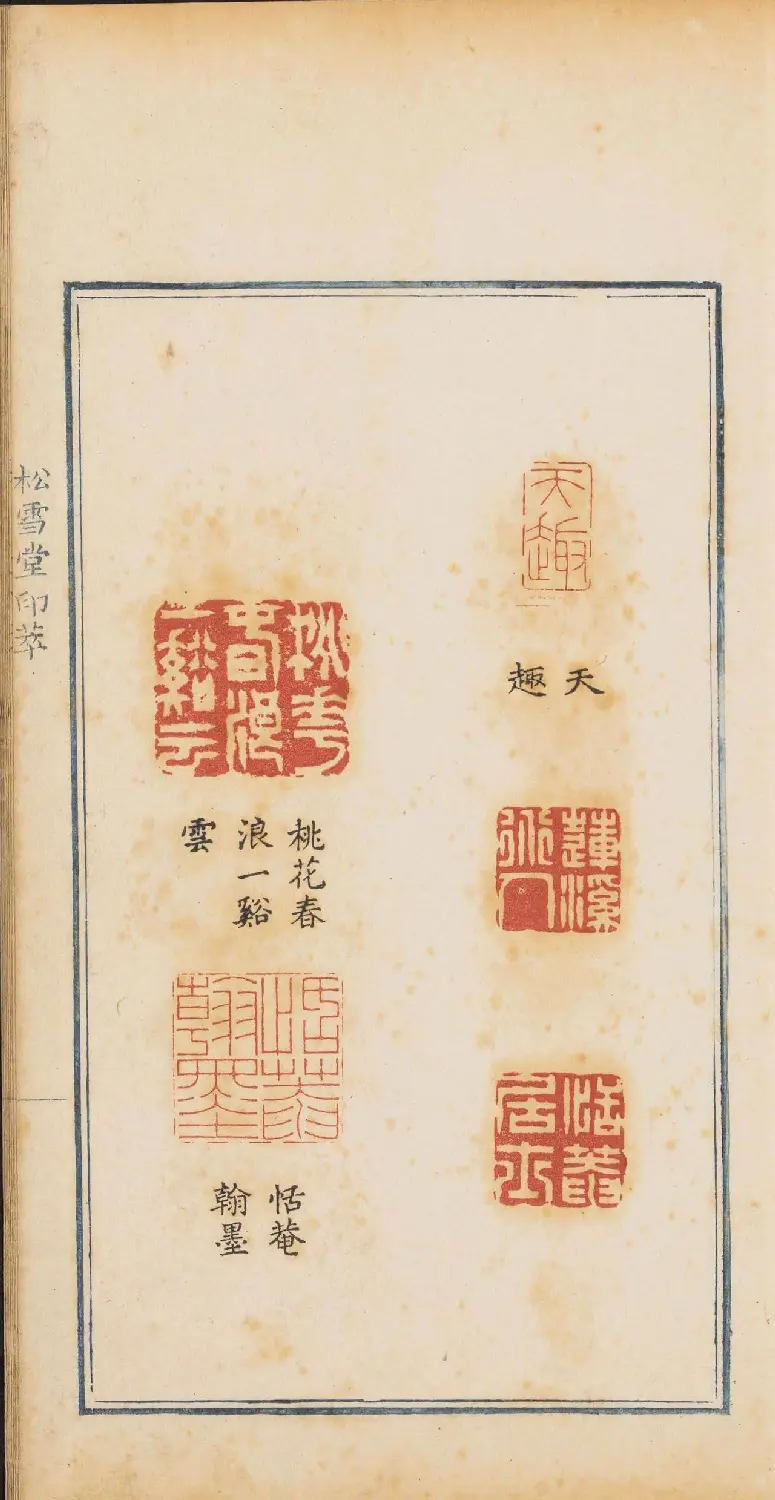 天趣
蓮溪
恬菴
居士
桃花春
浪一谿
雲
恬菴
翰墨
松雪堂印萃